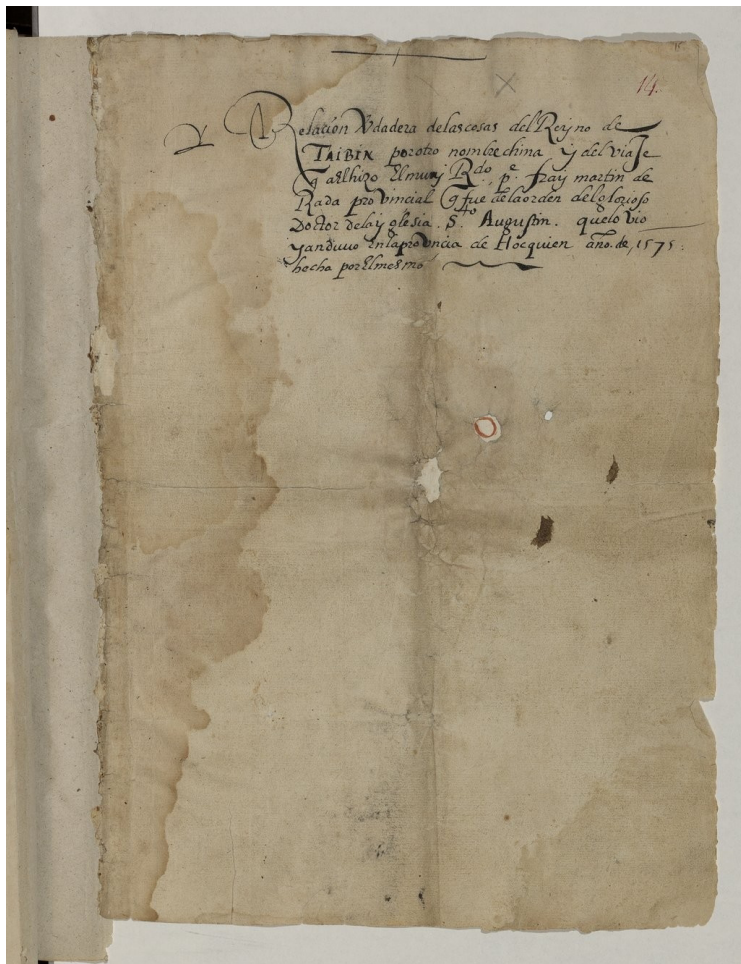 14.
Relacion Vdadera delascosas del Reyno de
TAIBIN porotro nombre china y del viaJe
q aelhizo Elmuy Rdo. pe. fray martin de
Rada provincial q fue delaorden delglorioso
Doctor delayglesia. Sto. Augustin. quelo vio
yanduvo Enlaprovincia de Hocquien año. de, 1575.
hecha porElmesmo